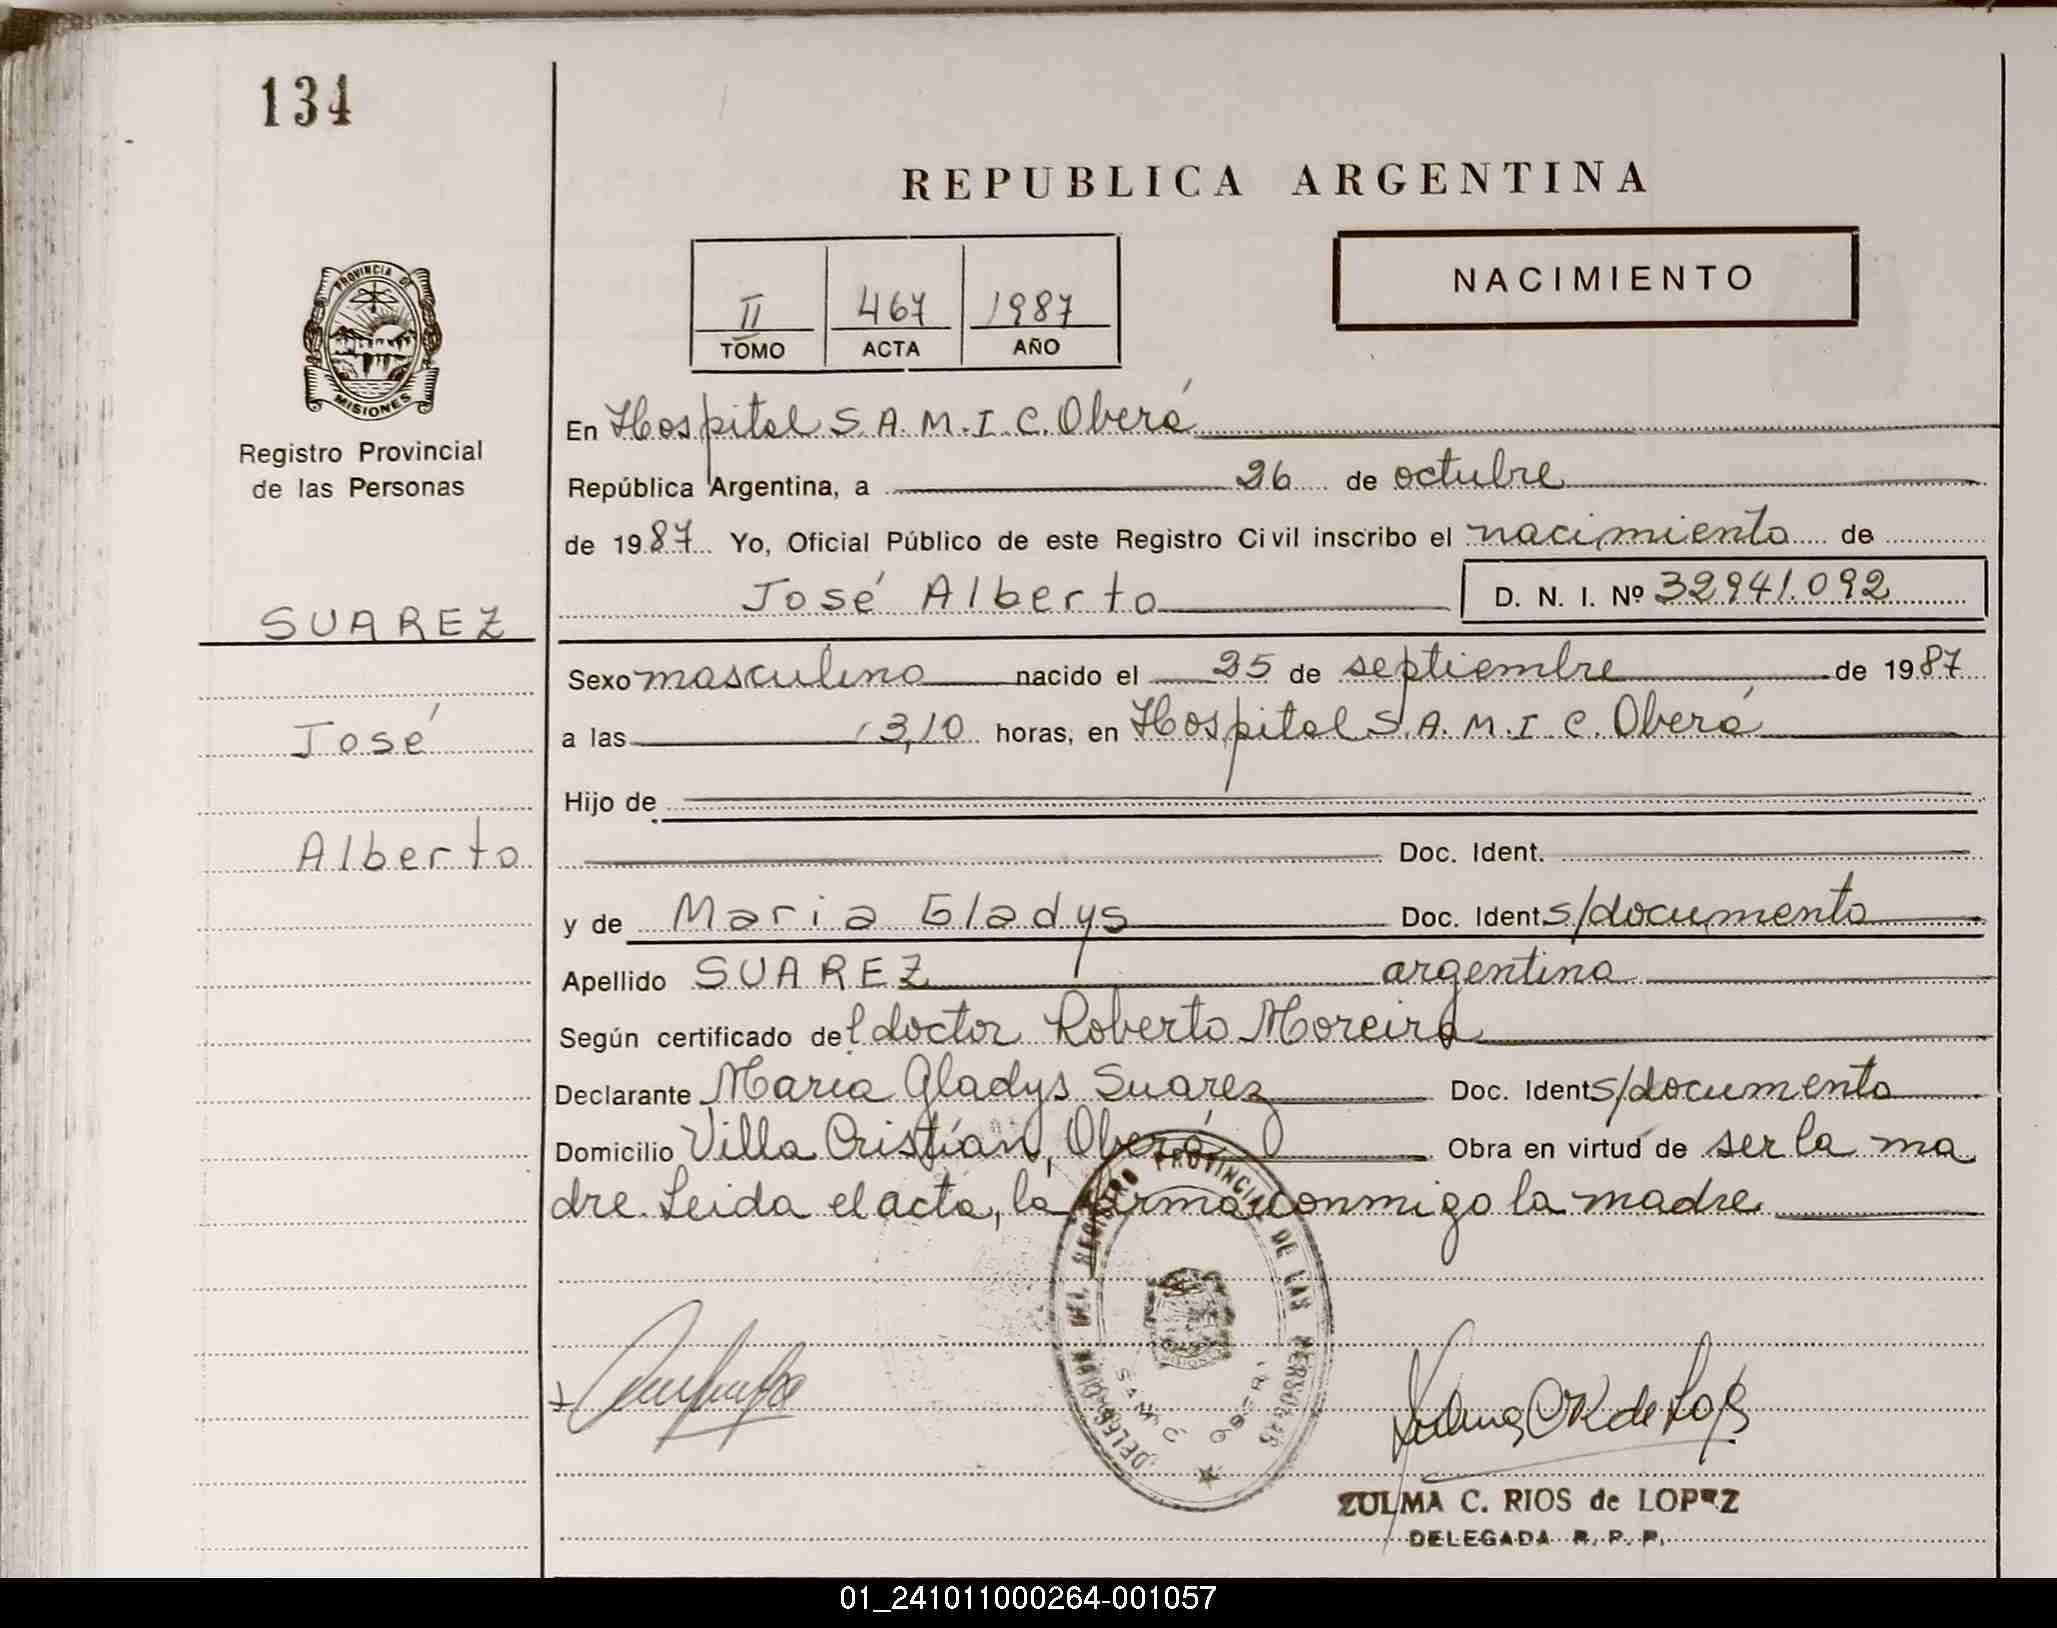 134
REPUBLICA ARGENTINA
NACIMIENTO
II 467 1987
TOMO ACTA AÑO
PROVINCIA DE
MISIONES
Registro Provincial
de las Personas
SUAREZ
José
Alberto
En Hospital S.A.M.I.C. Oberá
República Argentina, a 26 de octubre
de 1987 Yo, Oficial Público de este Registro Civil inscribo el nacimiento de
José Alberto D. N. I. Nº 32941.092
Sexo masculino nacido el 25 de septiembre de 1987
a las 13,10 horas, en Hospital S.A.M.I.C. Oberá
Hijo de
Doc. Ident.
y de Maria Gladys Doc. Ident s/documento
Apellido SUAREZ argentina
Según certificado del doctor Roberto Moreira
Declarante Maria Gladys Suarez Doc. Ident s/documento
Domicilio Villa Cristian, Oberá Obra en virtud de ser la ma
dre. Leida el acta, la firma conmigo la madre
DELEGACION DEL REGISTRO PROVINCIAL DE LAS PERSONAS
ZULMA C. RIOS de LOPEZ
DELEGADA R. P. P.
01_241011000264-001057